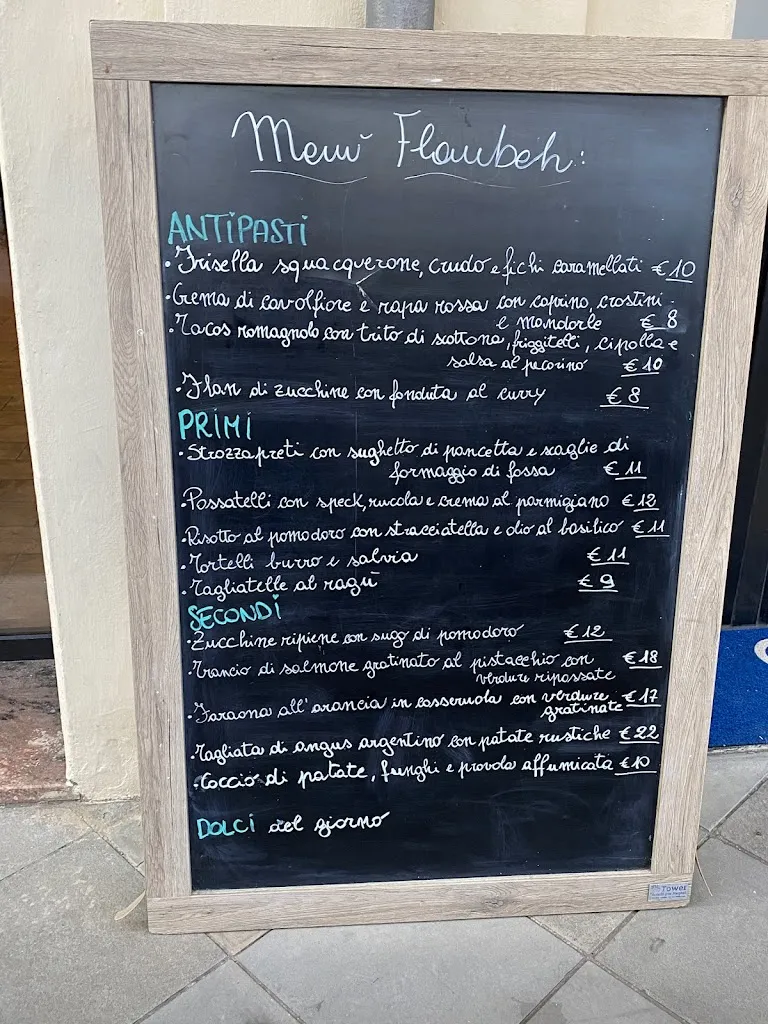 Menù Flaubeh:
ANTIPASTI
• Frisella squacquerone, crudo e fichi caramellati €10
• Crema di cavolfiore e rapa rossa con caprino, crostini
e mandorle €8
• Tacos romagnolo con trito di scottona, friggitelli, cipolla e
salsa al pecorino €10
• Flan di zucchine con fonduta al curry €8
PRIMI
• Strozzapreti con sughetto di pancetta e scaglie di
formaggio di fossa €11
• Passatelli con speck, rucola e crema al parmigiano €12
• Risotto al pomodoro con stracciatella e olio al basilico €11
• Tortelli burro e salvia €11
• Tagliatelle al ragù €9
SECONDI
• Zucchine ripiene con sugo di pomodoro €12
• Trancio di salmone gratinato al pistacchio con €18
verdure ripassate
• Faraona all'arancia in casseruola con verdure €17
gratinate
• Tagliata di angus argentino con patate rustiche €22
• Coccio di patate, funghi e provola affumicata €10
DOLCI del giorno
Tower